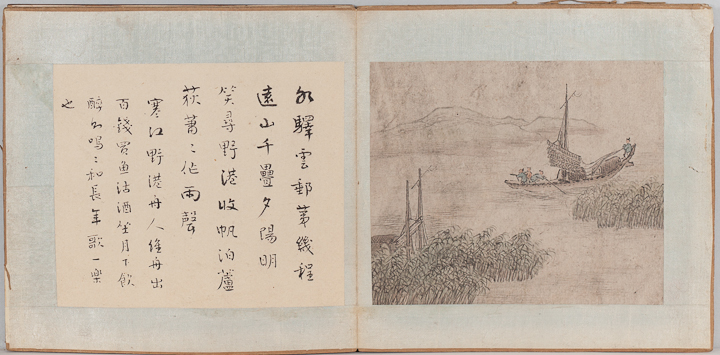 水驛雲郵第幾程
遠山千疊夕陽明
笑尋野港收帆泊蘆
荻蕭〻作雨聲
寒江野港舟人維舟出
百錢買魚沽酒坐月下飲
醉而嗚〻和長年歌一樂
也